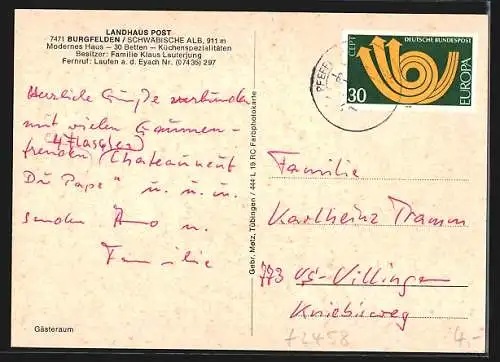 LANDHAUS POST
7471 BURGFELDEN / SCHWÄBISCHE ALB, 911 m
Modernes Haus — 30 Betten — Küchenspezialitäten
Besitzer: Familie Klaus Lauterjung
Fernruf: Laufen a. d. Eyach Nr. (07435) 297
Herzliche Grüße verbunden
mit vielen Gaumen-
(4 Flaschen)
freuden (Chateauneuf
Du Pape" u. u. u.
senden u.
Familie
Gästeraum
Gebr. Metz, Tübingen / 444 L 19 RC Farbphotokarte
CEPT
DEUTSCHE BUNDESPOST
30
EUROPA
Familie
Karlheinz Tramm
773 VS-Villingen
Kniebisweg
f2458
4.-